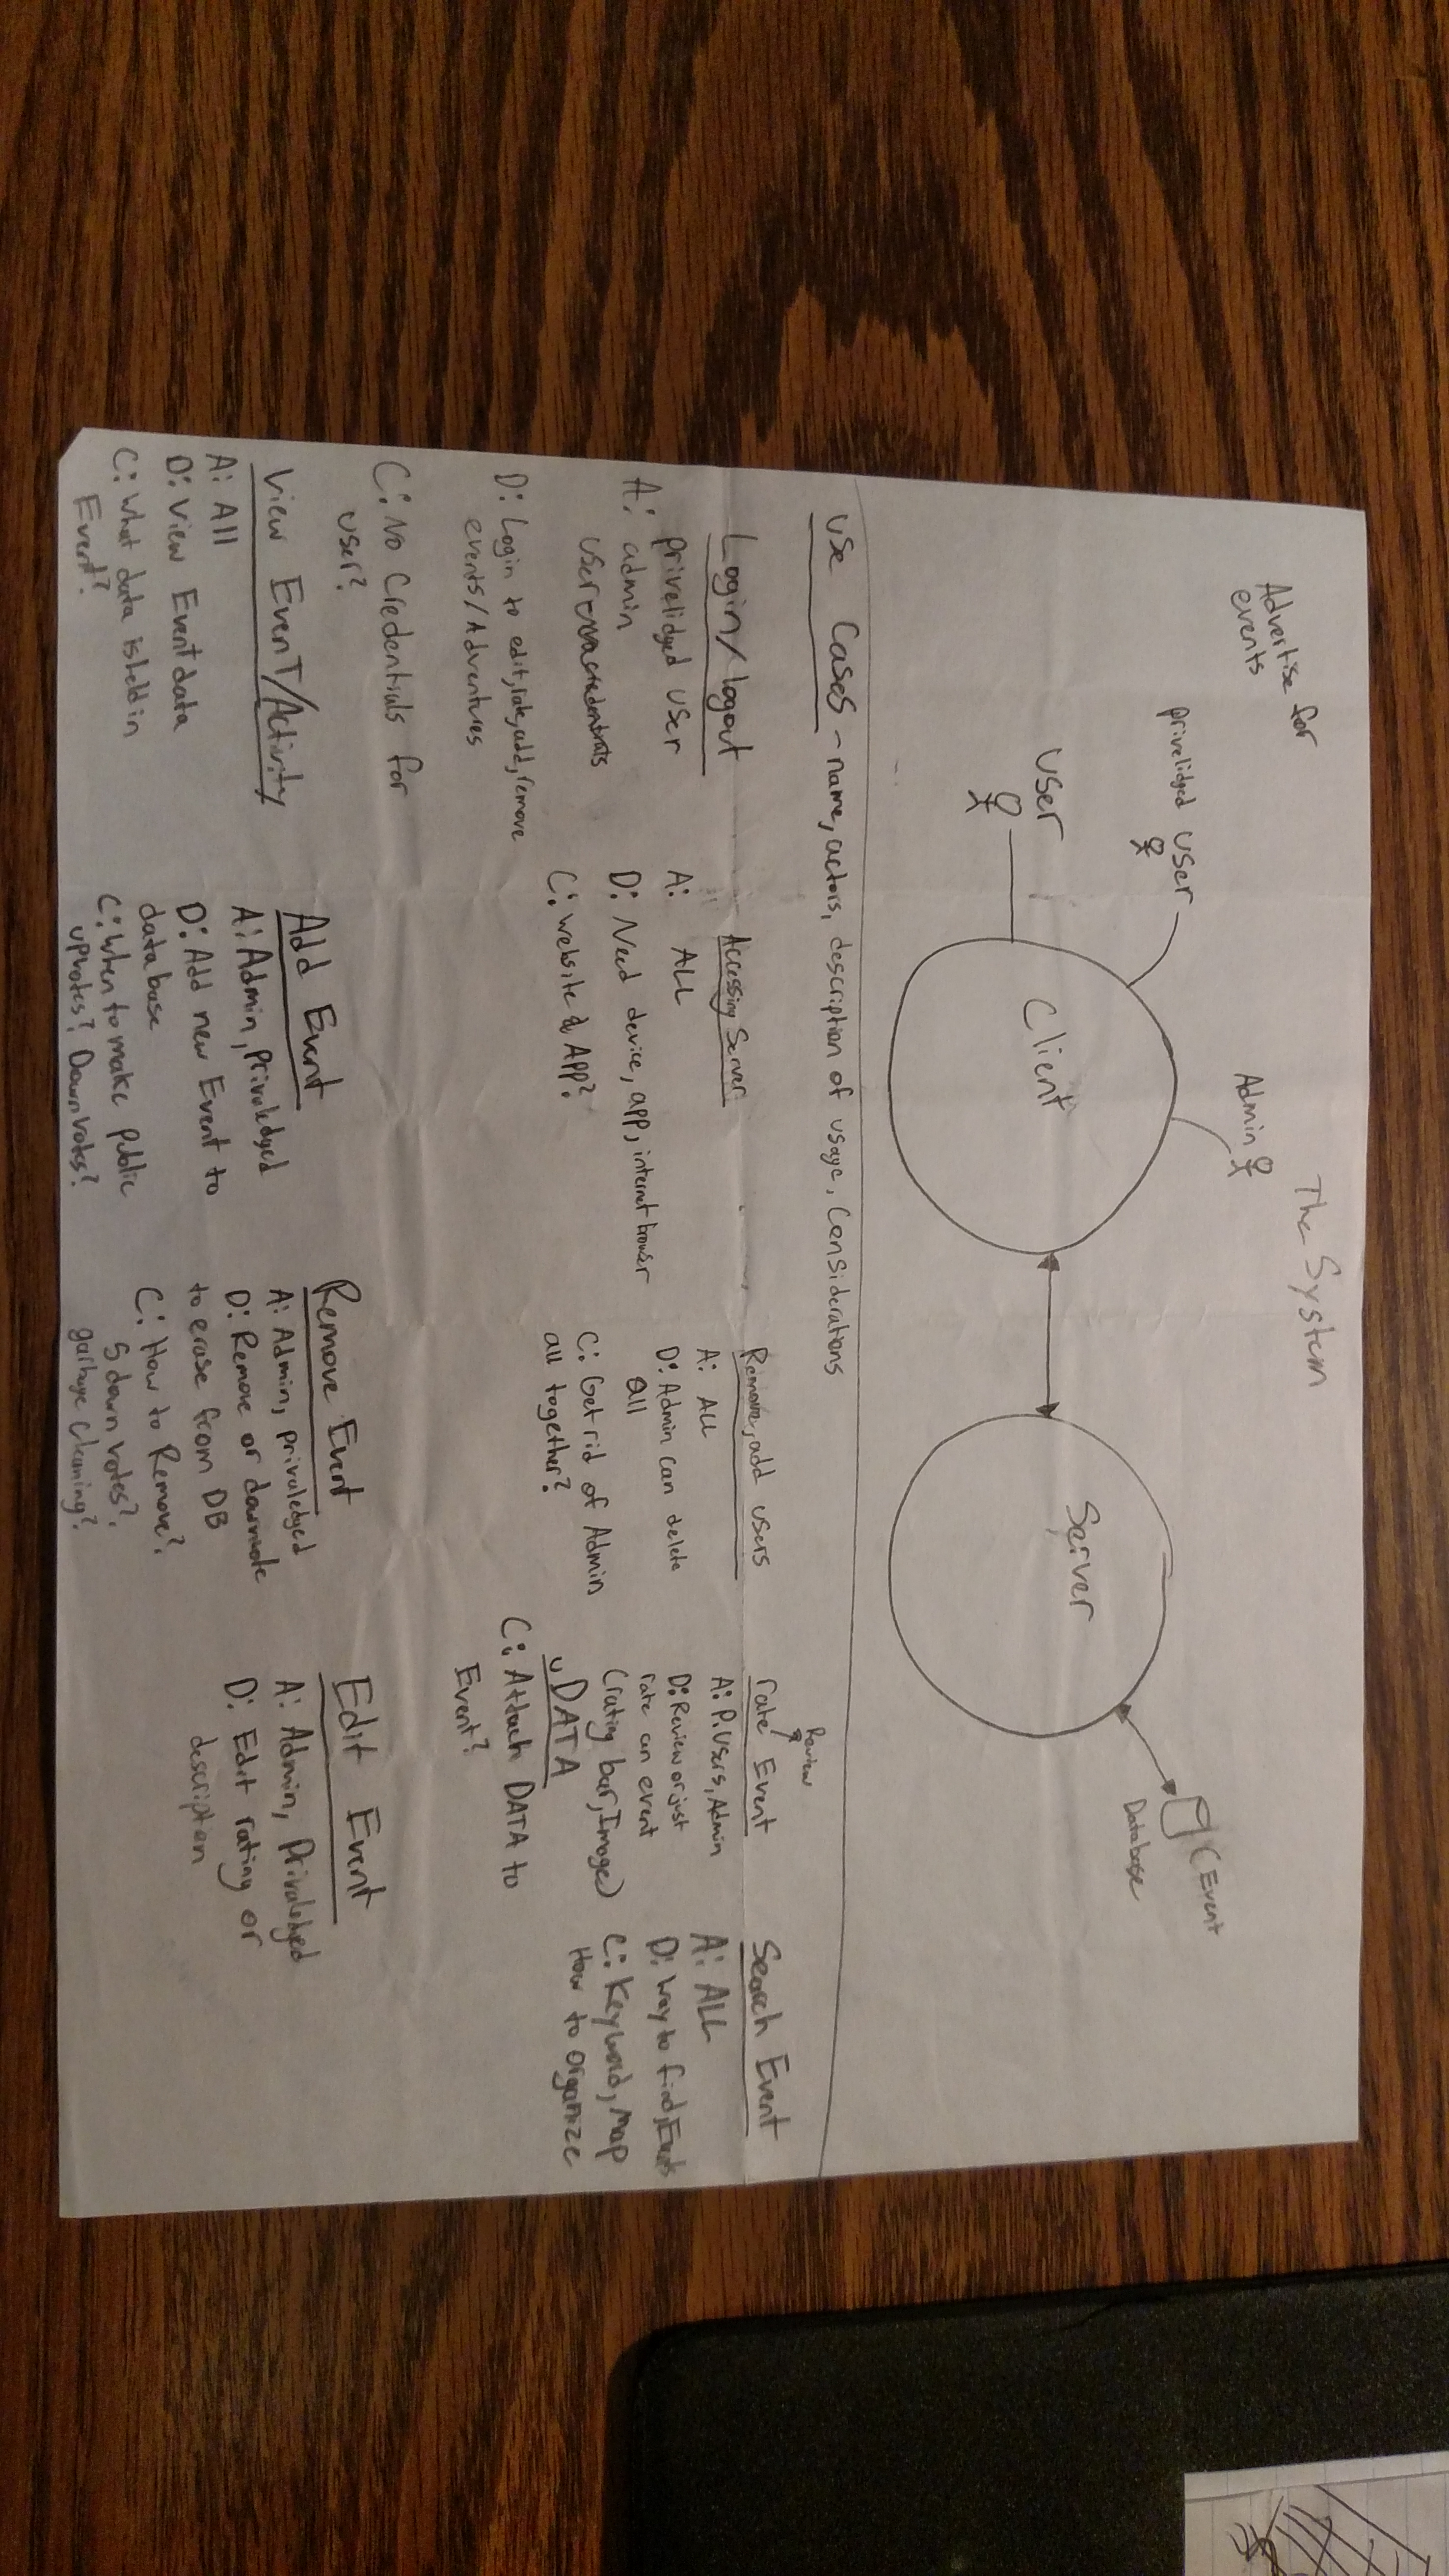 The System
Advertise for
events
privelidged user
Admin
user
Client
Server
(Event
Database
use Cases - name, actors, description of usage, Considerations
Login/logout
A: privelidged user
admin
user
D: Login to edit, rate, add, remove
events/Adventures
C: No Credentials for
user?
Accessing Server
A: ALL
D: Need device, app, internet browser
C: website & App?
Remove, add users
A: ALL
D: Admin can delete
all
C: Get rid of Admin
all together?
Review
rate/ Event
A: P.Users, Admin
D: Review or just
rate an event
(rating bar, Image)
DATA
C: Attach DATA to
Event?
Search Event
A: ALL
D: Way to find, Events
C: Keyword, Map
How to organize
View EvenT/Activity
A: All
D: View Event data
C: What data is held in
Event?
Add Event
A: Admin, Privaledged
D: Add new Event to
database
C: When to make public
upvotes? Downvotes?
Remove Event
A: Admin, privaledged
D: Remove or downvote
to erase from DB
C: How to Remove?
5 down votes?
garbage cleaning?
Edit Event
A: Admin, Privaledged
D: Edit rating or
description